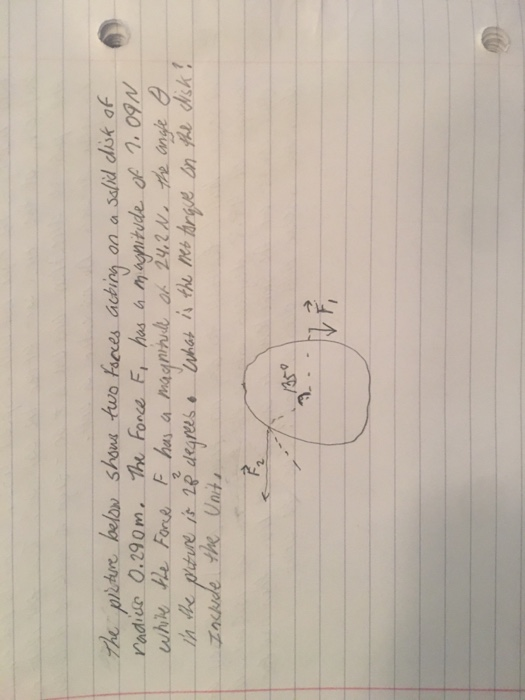 The picture below shows two forces acting on a solid disk of
radius 0.290m. The Force F, has a magnitude of 7.09N
while the Force F2 has a magnitude of 24.2 N. The angle θ
in the picture is 28 degrees. What is the net torque on the disk?
Include the Unit.
F2
135°
F1